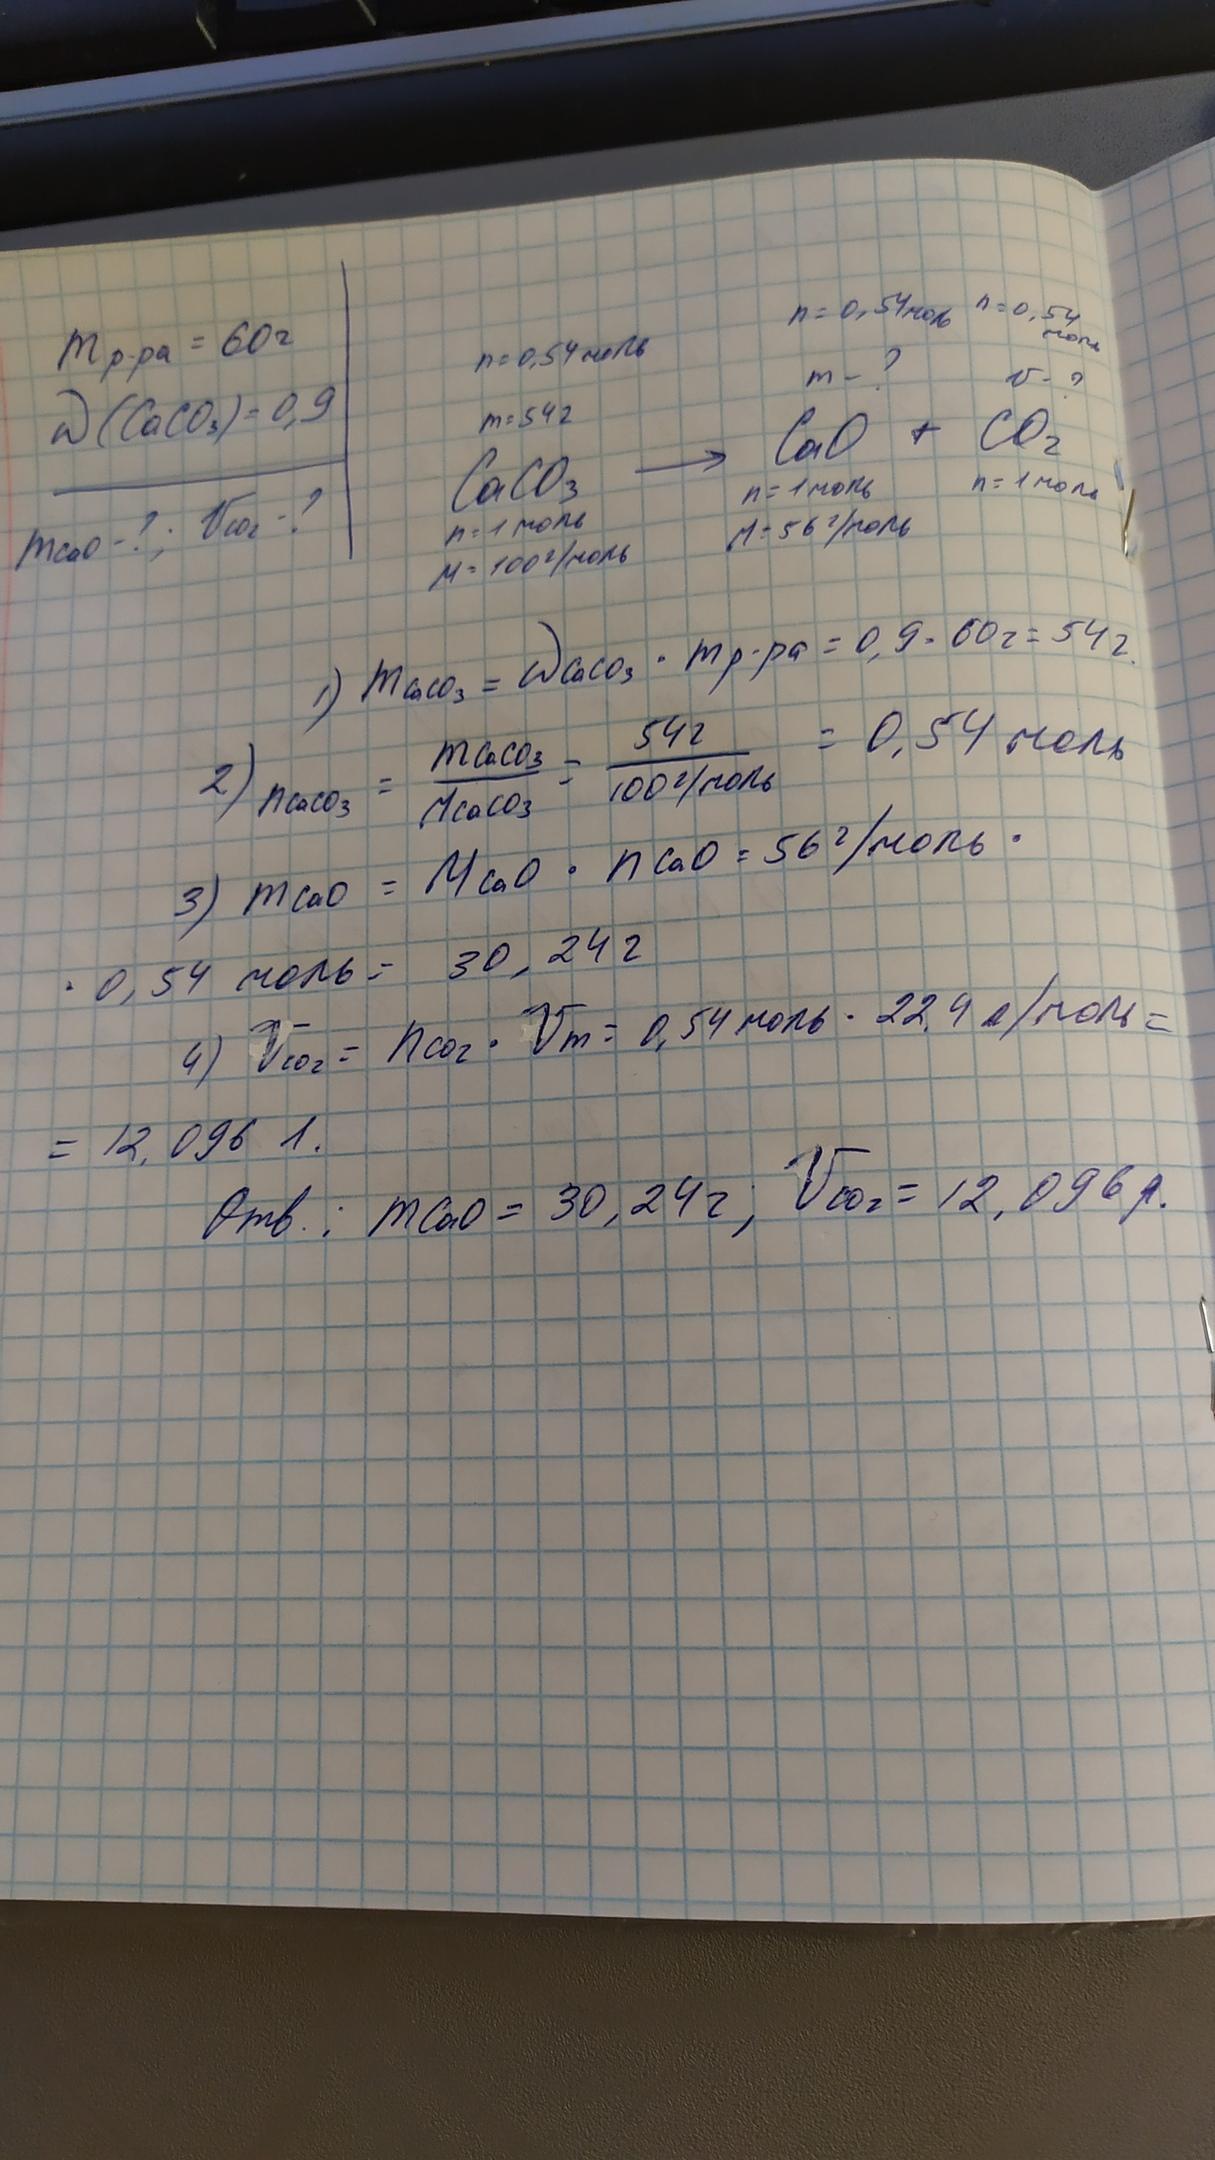 m р-ра = 60г
ω(CaCO₃)=0,9
mCaO-?; VCO₂-?
n=0,54моль
m=54г
CaCO₃ → CaO + CO₂
n=1моль
M=100г/моль
n=0,54моль
m-?
n=1моль
M=56г/моль
n=0,54
моль
V-?
n=1моль
1) mCaCO₃ = ωCaCO₃ · m р-ра = 0,9·60г=54г.
2) nCaCO₃ = mCaCO₃/MCaCO₃ = 54г/100г/моль = 0,54 моль
3) mCaO = MCaO · nCaO = 56г/моль ·
· 0,54 моль = 30,24г
4) VCO₂ = nCO₂ · Vm = 0,54моль · 22,4 л/моль =
= 12,096 л.
Отв.: mCaO = 30,24г; VCO₂ = 12,096л.